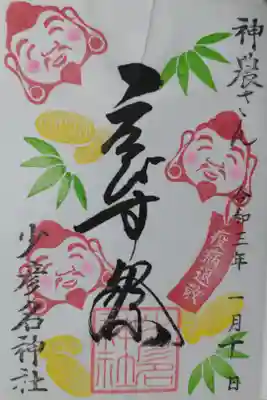 神農さん 令和三年 一月十日
疫病退散
祭
少彦名神社